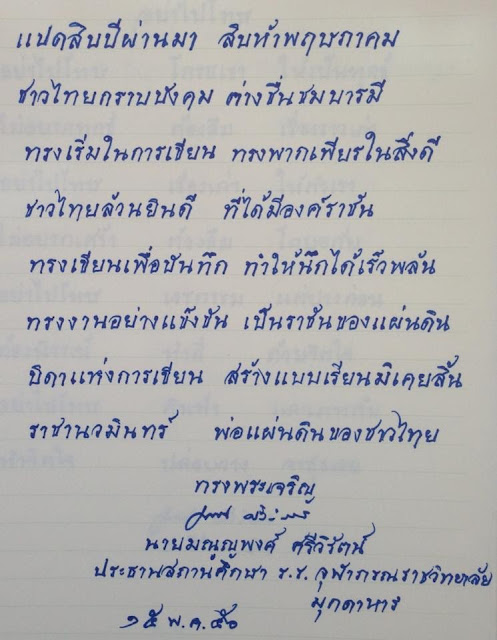 แปดสิบปีผ่านมา สิบห้าพฤษภาคม
ชาวไทยกราบบังคม ต่างชื่นชมบารมี
ทรงเริ่มในการเขียน ทรงพากเพียรในสิ่งดี
ชาวไทยล้วนยินดี ที่ได้มีองค์ราชัน
ทรงเขียนเพื่อบันทึก ทำให้นึกได้เร็วพลัน
ทรงงานอย่างแข็งขัน เป็นราชันของแผ่นดิน
บิดาแห่งการเขียน สร้างแบบเรียนมิเคยสิ้น
ราชานวมินทร์ พ่อแผ่นดินของชาวไทย
ทรงพระเจริญ
นายมณูญพงศ์ ศรีวิรัตน์
ประธานสถานศึกษา ร.ร. จุฬาภรณราชวิทยาลัย
มุกดาหาร
๑๕ พ.ค. ๕๐